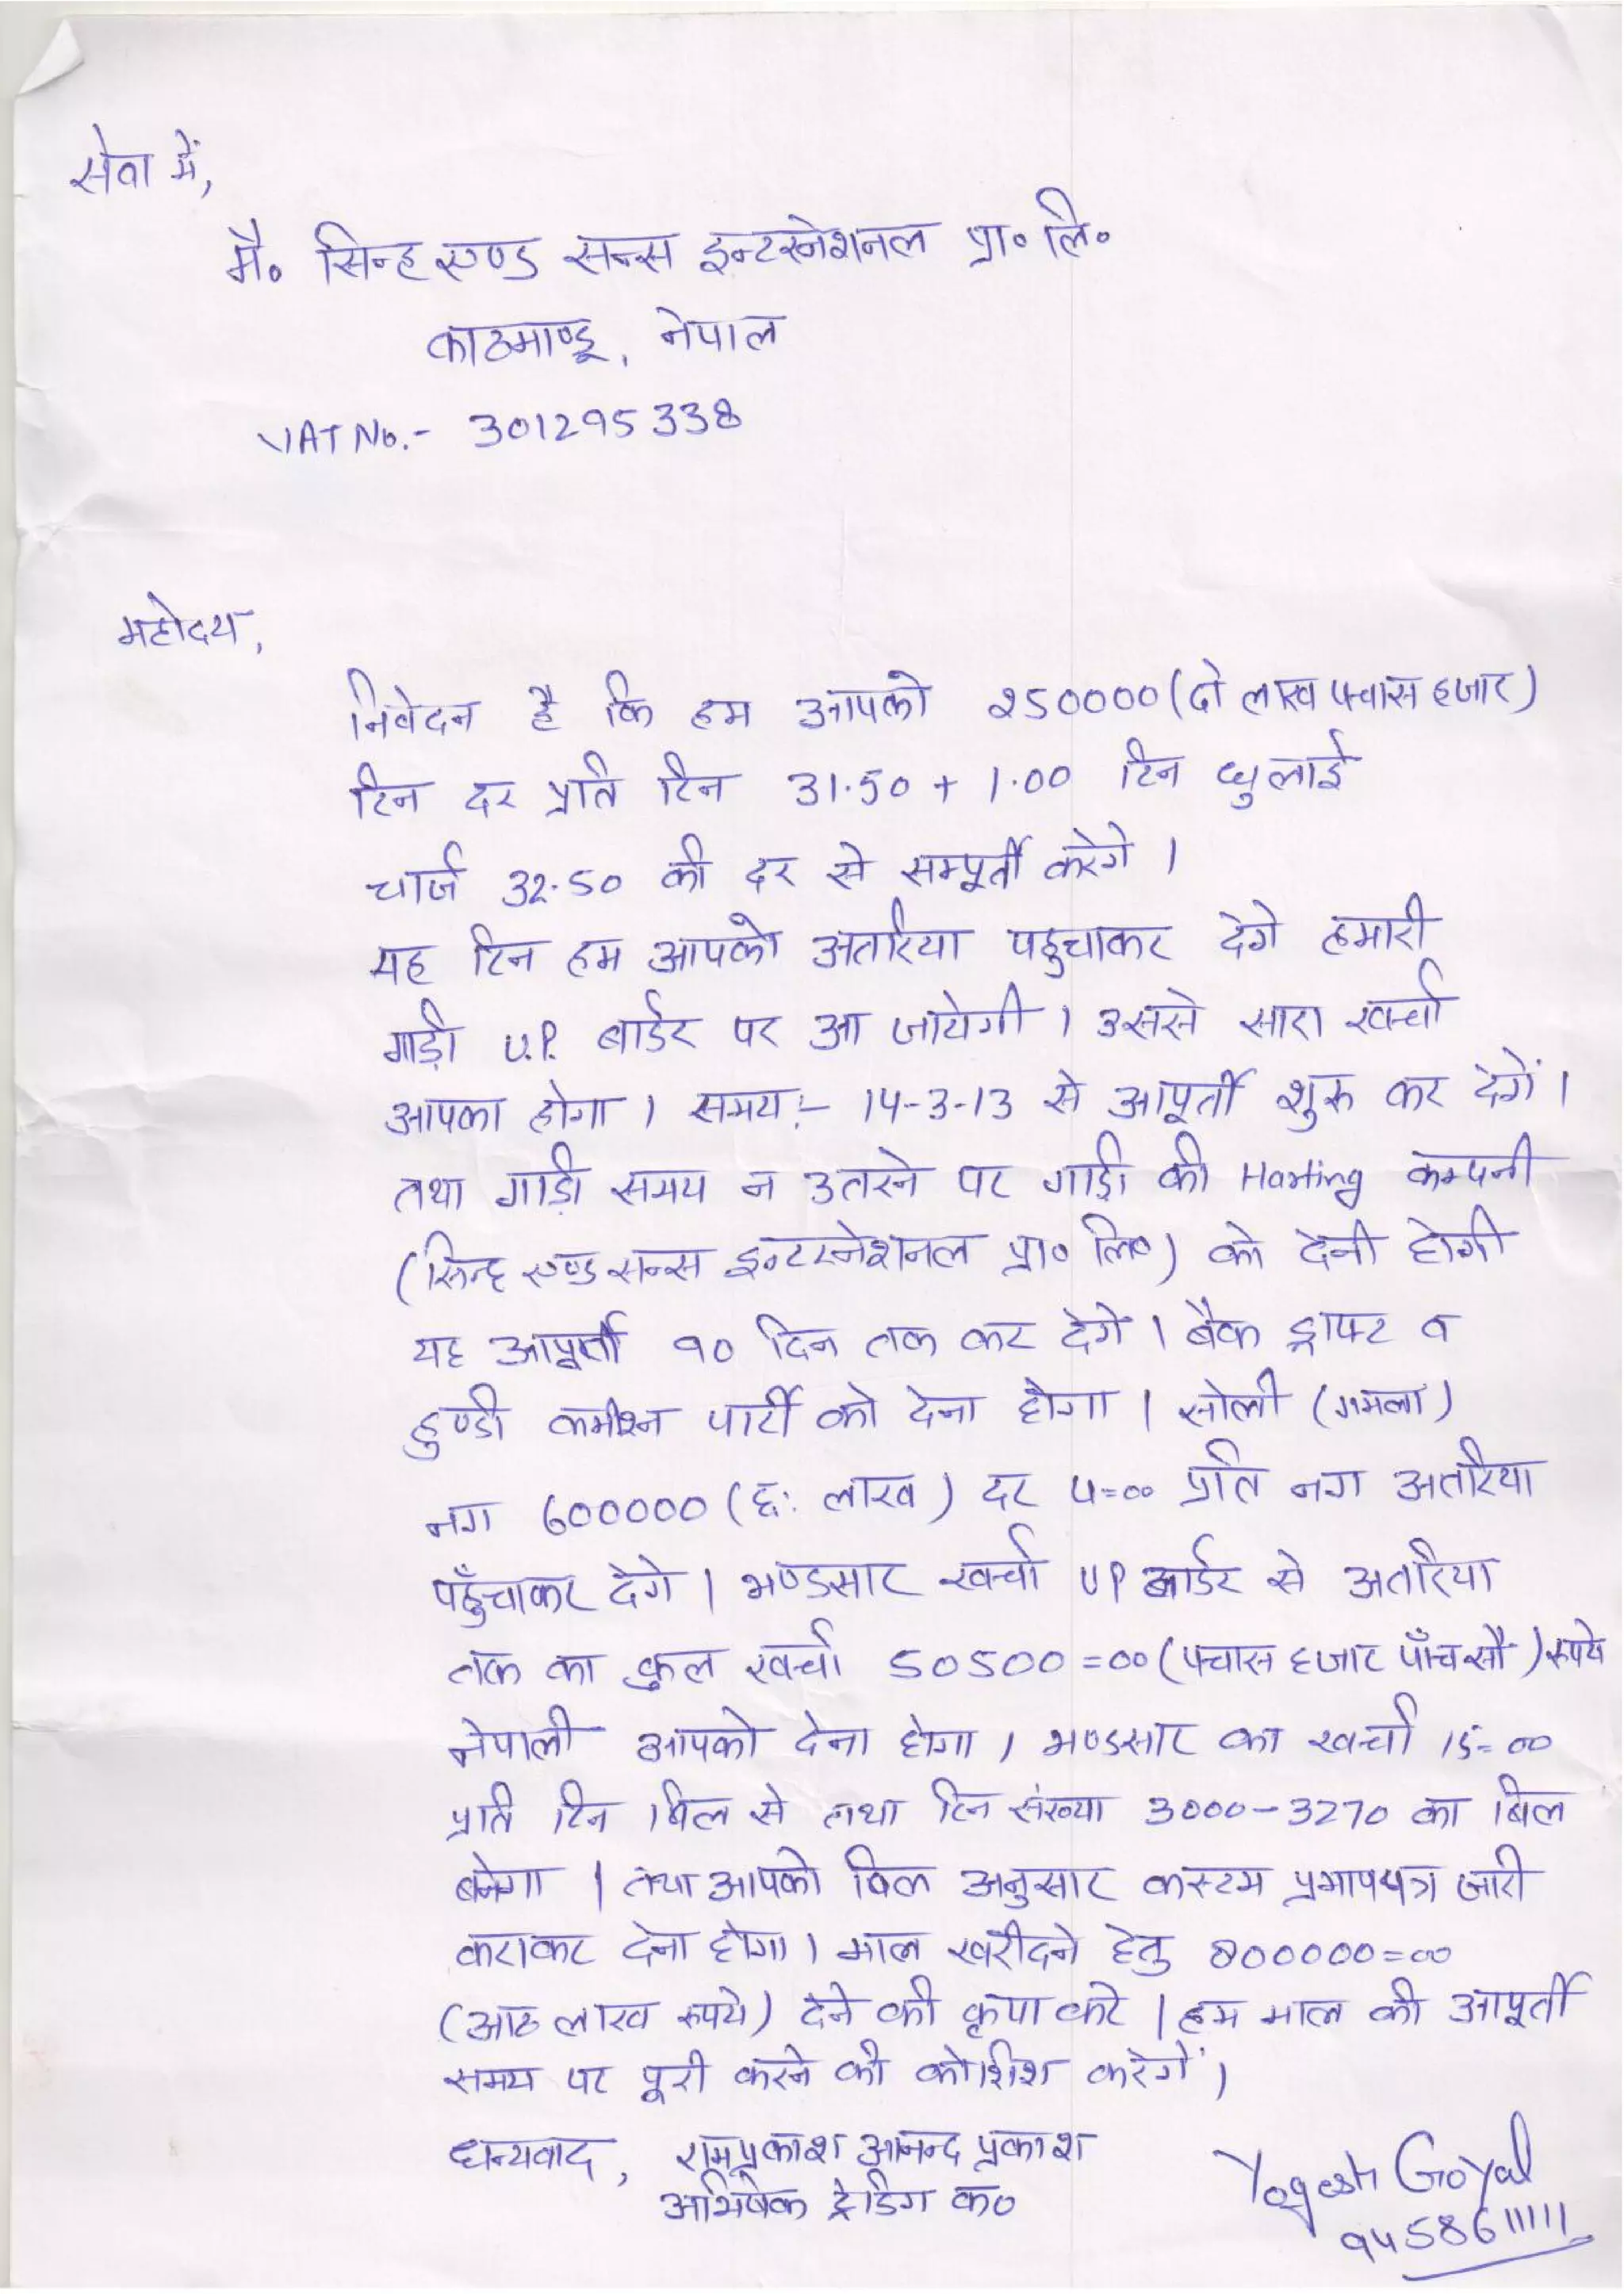 सेवा में,
मै० सिन्ह एण्ड सन्स इन्टरनेशनल प्रा० लि०
काठमाण्डू, नेपाल
VAT No.- 301295338
महोदय,
निवेदन है कि हम आपको 250000 (दो लाख पचास हजार)
टिन दर प्रति टिन 31.50 + 1.00 टिन धुलाई
चार्ज 32.50 की दर से सम्पूर्ती करेगे ।
यह टिन हम आपको अतरिया पहुचाकर देगे हमारी
गाड़ी U.P. बार्डर पर आ जायेगी । उससे सारा खर्चा
आपका होगा । समय:- 14-3-13 से आपूर्ती शुरू कर देगें ।
तथा गाड़ी समय न उतरने पर गाड़ी की Harting कम्पनी
(सिन्ह एण्ड सन्स इन्टरनेशनल प्रा० लि०) को देनी होगी
यह आपूर्ती 90 दिन तक कर देगे । बैक ड्राफ्ट व
हुण्डी कमीशन पार्टी को देना होगा । सोली (गमला)
नग 600000 (छ: लाख) दर 5=00 प्रति नग अतरिया
पहुँचाकर देगे । भण्डसार खर्चा UP बार्डर से अतरिया
तक का कुल खर्चा 50500=00 (पचास हजार पाँच सौ) रूपये
नेपाली आपको देना होगा । भण्डसार का खर्चा 15=00
प्रति टिन बिल से तथा टिन संख्या 3000-3270 का बिल
बनेगा । तथा आपको बिल अनुसार कस्टम प्रमापपत्र जारी
कराकर देना होगा । माल खरीदने हेतु 800000=00
(आठ लाख रूपये) देने की कृपा करे । हम माल की आपूर्ती
समय पर पूरी करने की कोशिश करेगें ।
धन्यवाद, रामप्रकाश आनन्द प्रकाश
अभिषेक ट्रेडिग क०
Yogesh Goyal
9458611111